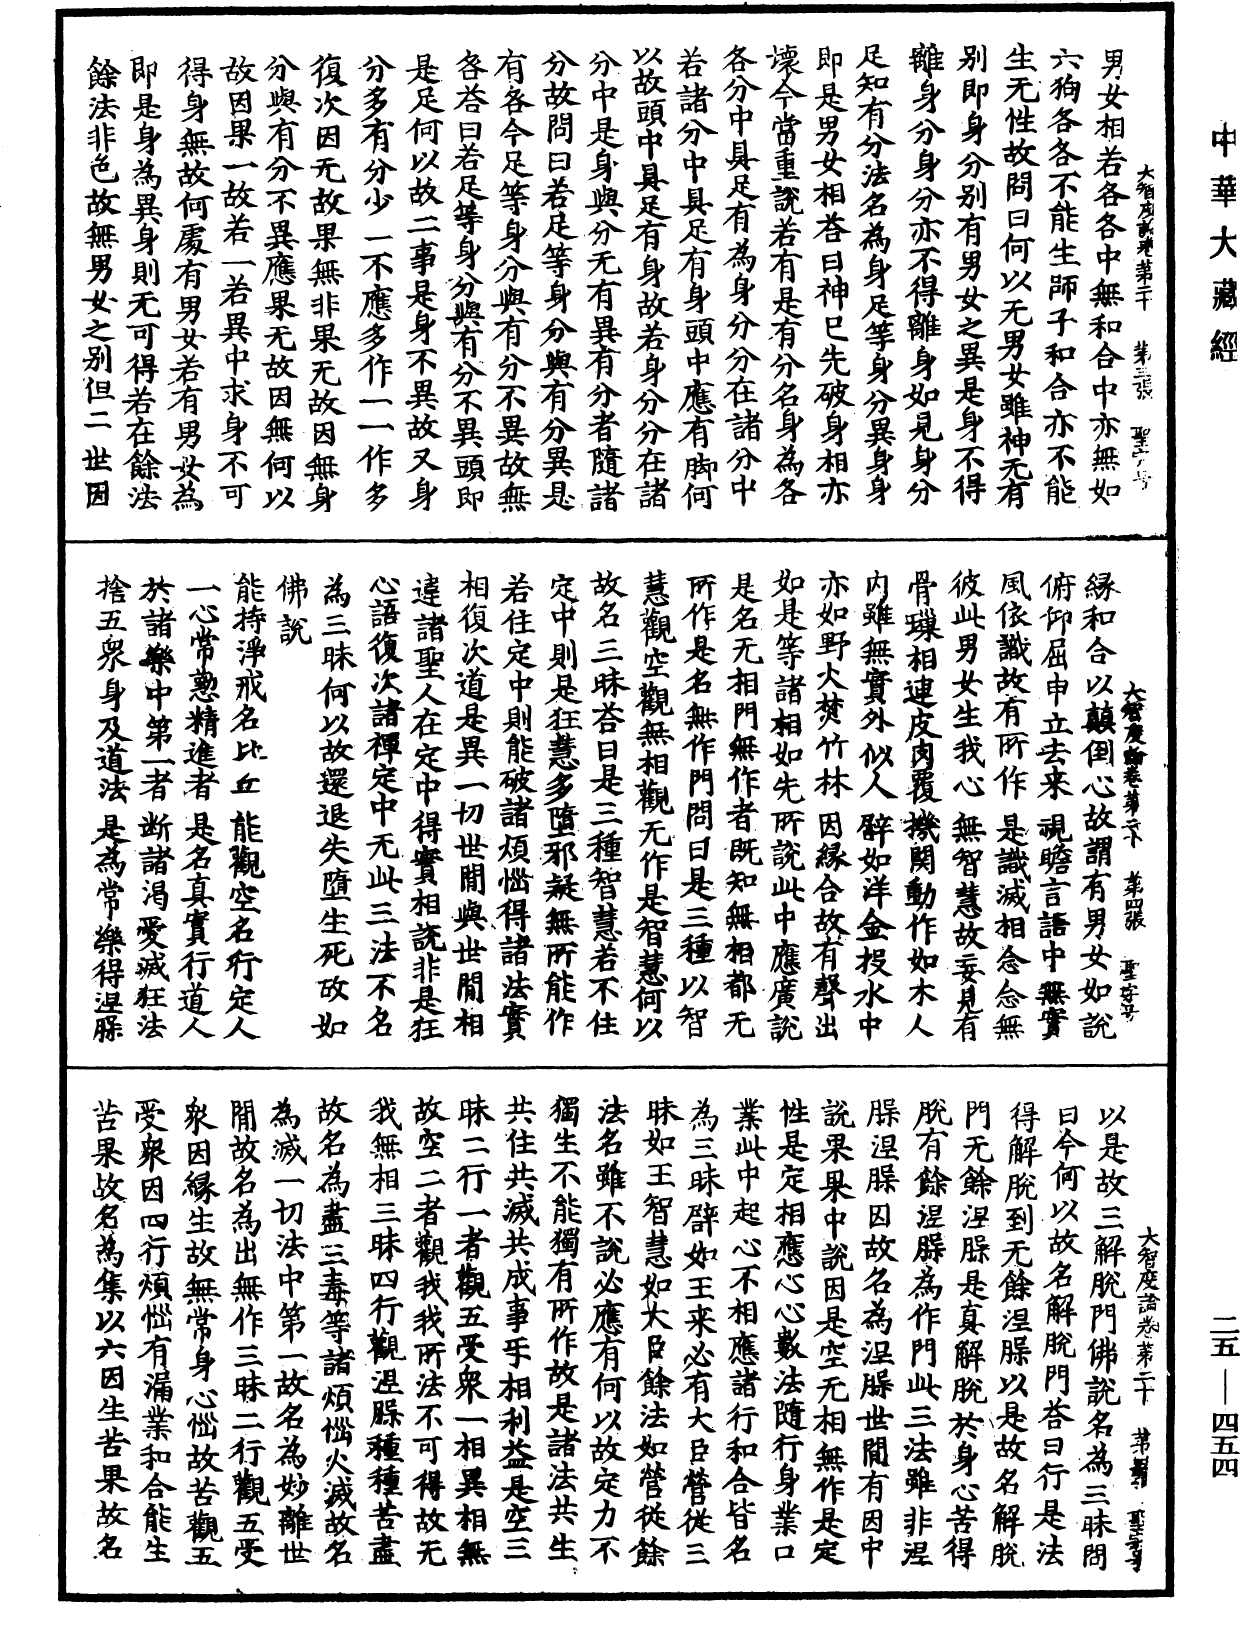 中華大藏經
大智度論卷第二十　第三張　聖字号
男女相若各各中無和合中亦無如
六狗各各不能生師子和合亦不能
生无性故問曰何以无男女雖神无有
別即身分別有男女之異是身不得
離身分身分亦不得離身如見身分
足知有分法名為身足等身分異身身
即是男女相荅曰神已先破身相亦
壞今當重說若有是有分名身為各
各分中具足有為身分分在諸分中
若諸分中具足有身頭中應有脚何
以故頭中具足有身故若身分分在諸
分中是身與分无有異有分者隨諸
分故問曰若足等身分與有分異是
有各今足等身分與有分不異故無
咎荅曰若足等身分與有分不異頭即
是足何以故二事是身不異故又身
分多有分少一不應多作一一作多
復次因无故果無非果无故因無身
分與有分不異應果无故因無何以
故因果一故若一若異中求身不可
得身無故何處有男女若有男女為
即是身為異身則无可得若在餘法
餘法非色故無男女之別但二世因
大智度論卷第二十　第四張　聖字号
緣和合以顛倒心故謂有男女如說
俯仰屈申立去来　視瞻言語中無實
風依識故有所作　是識滅相念念無
彼此男女生我心　無智慧故妄見有
骨璅相連皮肉覆　機關動作如木人
内雖無實外似人　譬如洋金投水中
亦如野火焚竹林　因緣合故有聲出
如是等諸相如先所說此中應廣說
是名无相門無作者既知無相都无
所作是名無作門問曰是三種以智
慧觀空觀無相觀无作是智慧何以
故名三昧荅曰是三種智慧若不住
定中則是狂慧多墮邪疑無所能作
若住定中則能破諸煩惱得諸法實
相復次道是異一切世間與世間相
違諸聖人在定中得實相說非是狂
心語復次諸禪定中无此三法不名
為三昧何以故還退失墮生死故如
佛說
能持淨戒名比丘　能觀空名行定人
一心常懃精進者　是名真實行道人
於諸樂中第一者　断諸渴愛滅狂法
捨五衆身及道法　是為常樂得涅槃
大智度論卷第二十　聖字号
以是故三解脫門佛說名為三昧問
曰今何以故名解脫門荅曰行是法
得解脫到无餘涅槃以是故名解脫
門无餘涅槃是真解脫於身心苦得
脫有餘涅槃為作門此三法雖非涅
槃涅槃因故名為涅槃世間有因中
說果果中說因是空无相無作是定
性是定相應心心數法隨行身業口
業此中起心不相應諸行和合皆名
為三昧譬如王来必有大臣營從三
昧如王智慧如大臣餘法如營從餘
法名雖不說必應有何以故定力不
獨生不能獨有所作故是諸法共生
共住共滅共成事乎相利益是空三
昧二行一者觀五受衆一相異相無
故空二者觀我我所法不可得故无
我無相三昧四行觀涅槃種種苦盡
故名為盡三毒等諸煩惱火滅故名
為滅一切法中第一故名為妙離世
間故名為出無作三昧二行觀五受
衆因緣生故無常身心惱故苦觀五
受衆因四行煩惱有漏業和合能生
苦果故名為集以六因生苦果故名
二五—四五四